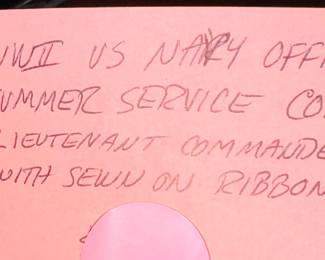 WWII US NAVY OFFI
SUMMER SERVICE CO
LIEUTENANT COMMANDE
WITH SEWN ON RIBBON